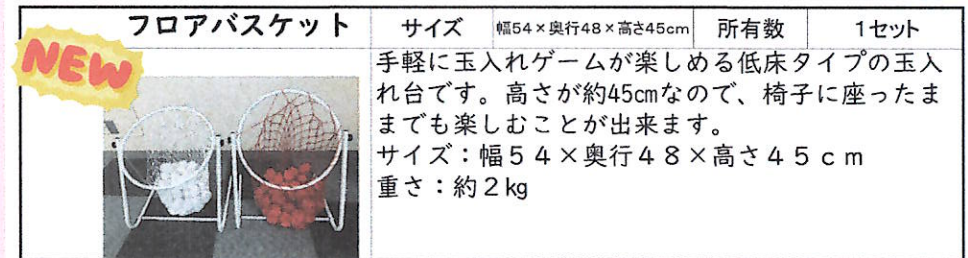 フロアバスケット サイズ 幅54×奥行48×高さ45cm 所有数 1セット
NEW
手軽に玉入れゲームが楽しめる低床タイプの玉入
れ台です。高さが約45㎝なので、椅子に座ったま
までも楽しむことが出来ます。
サイズ：幅５４×奥行４８×高さ４５ｃｍ
重さ：約２kg